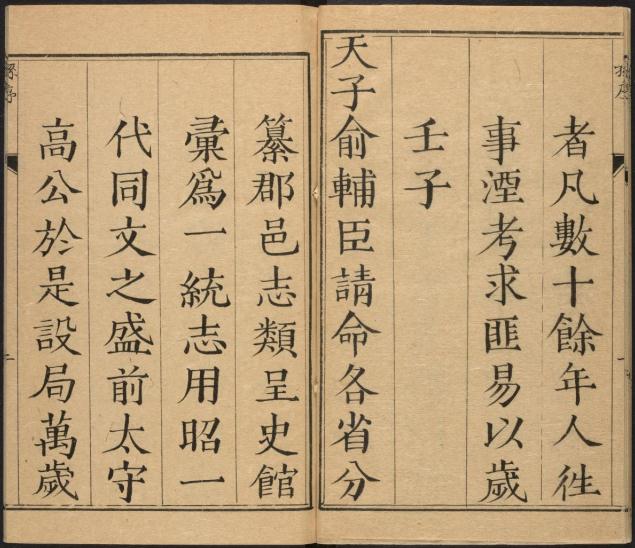 者凡數十餘年人徃
事湮考求匪易以歲
壬子
天子俞輔臣請命各省分
纂郡邑志類呈史館
彚爲一統志用昭一
代同文之盛前太守
高公於是設局萬歲